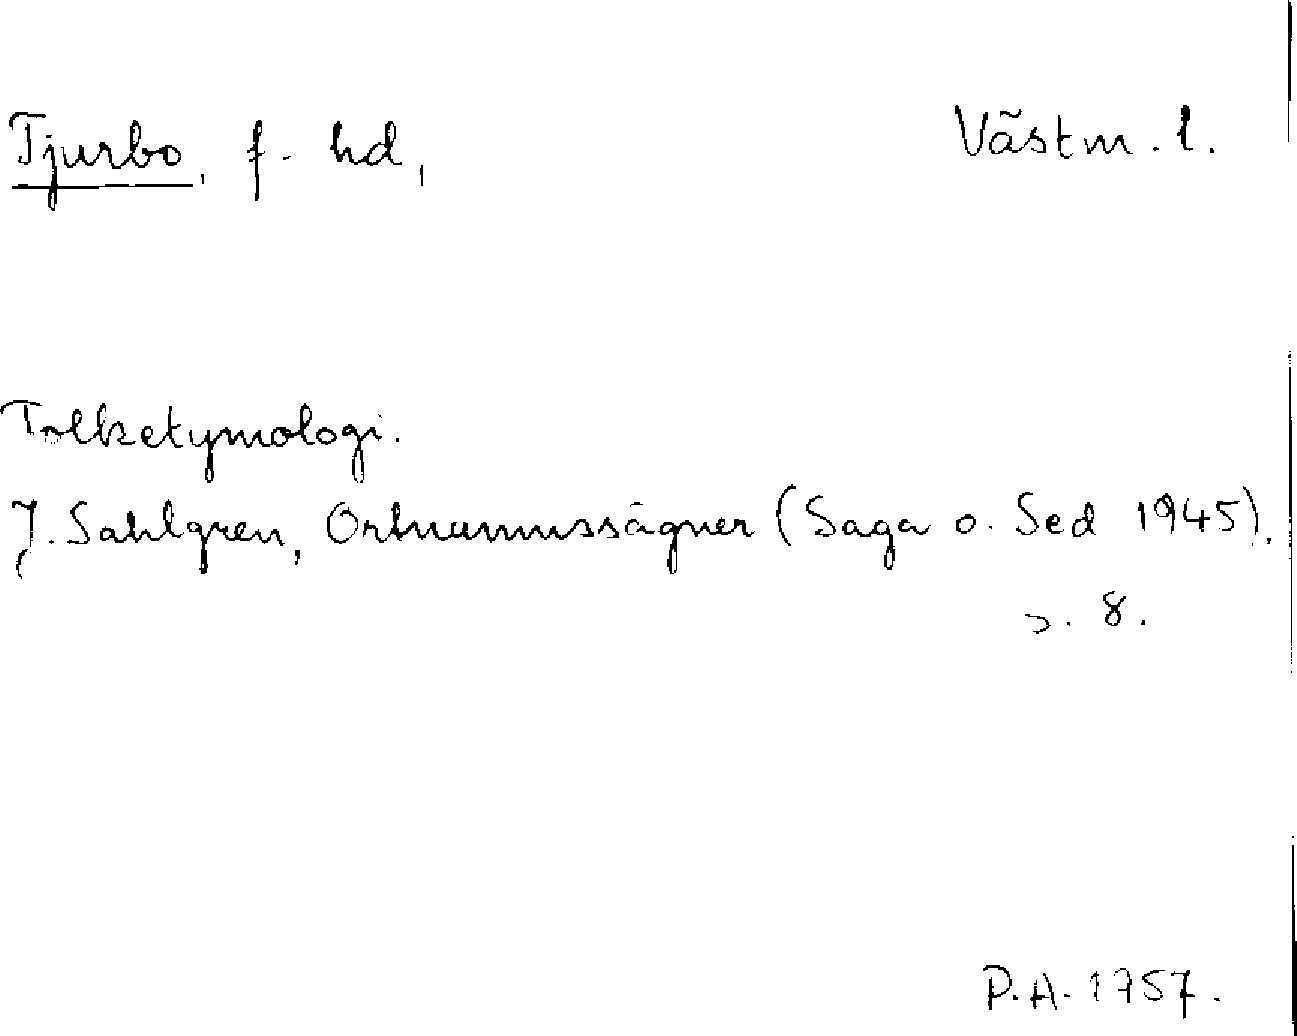 Tjurbo, f. hd, Västm. l.
Folketymologi.
J. Sahlgren, Ortnamnssägner (Saga o. Sed 1945).
s. 8.
P.A. 1957.